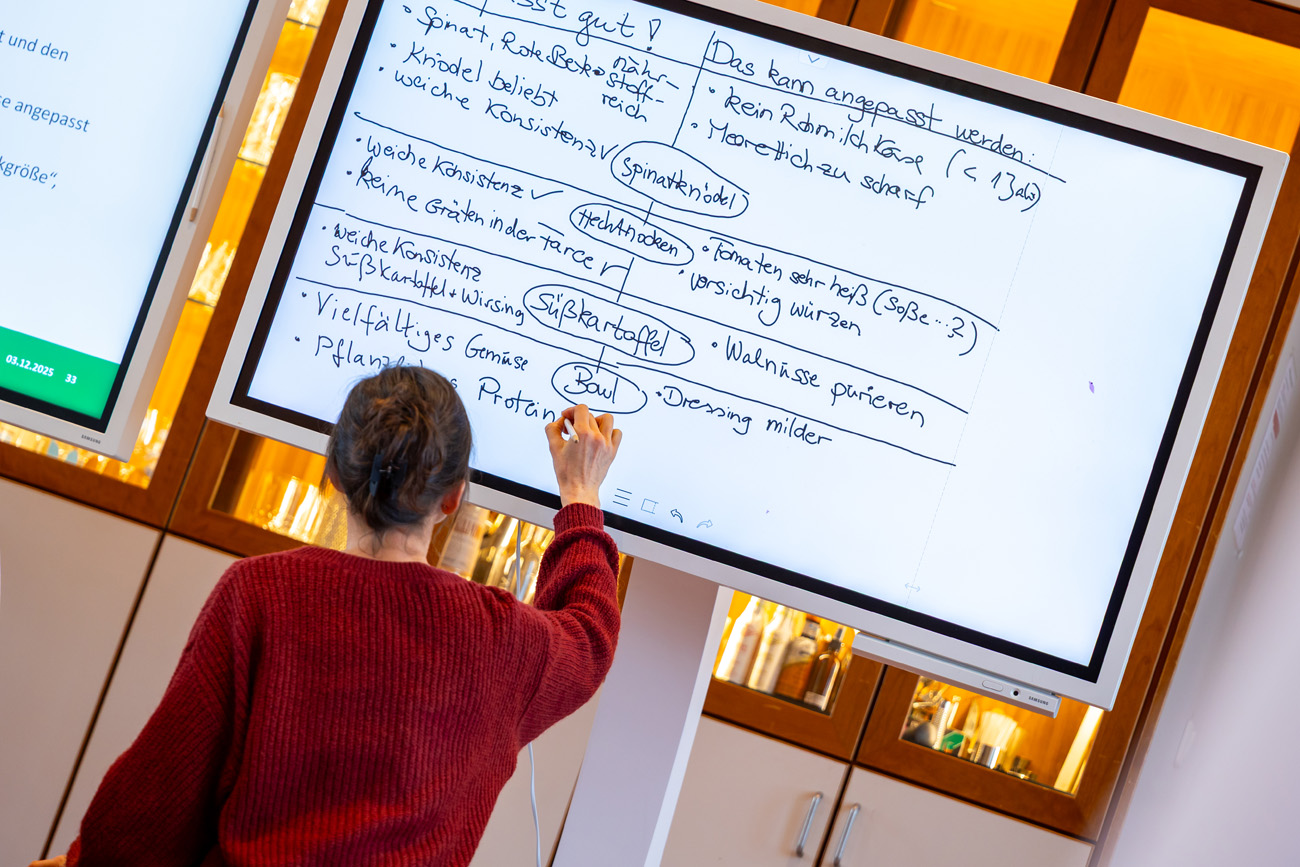 t und den
se angepasst
kgröße“,
03.12.2025 33
SAMSUNG
sst gut!
• Spinat, Rote Bete → nähr-
stoff-
reich
• Knödel beliebt
• weiche Konsistenz ✓
Das kann angepasst werden:
• kein Rohmilchkäse (< 1 Jahr)
• Meerettich zu scharf
Spinatknödel
• Weiche Konsistenz ✓
• keine Gräten in der Farce ✓
Hechtnocken
• Tomaten sehr heiß (Soße...?)
• vorsichtig würzen
• weiche Konsistenz
Süßkartoffel + Wirsing
Süßkartoffel
• Walnüsse pürieren
• Vielfältiges Gemüse
• Pflanzliches Protein
Bowl
• Dressing milder
SAMSUNG